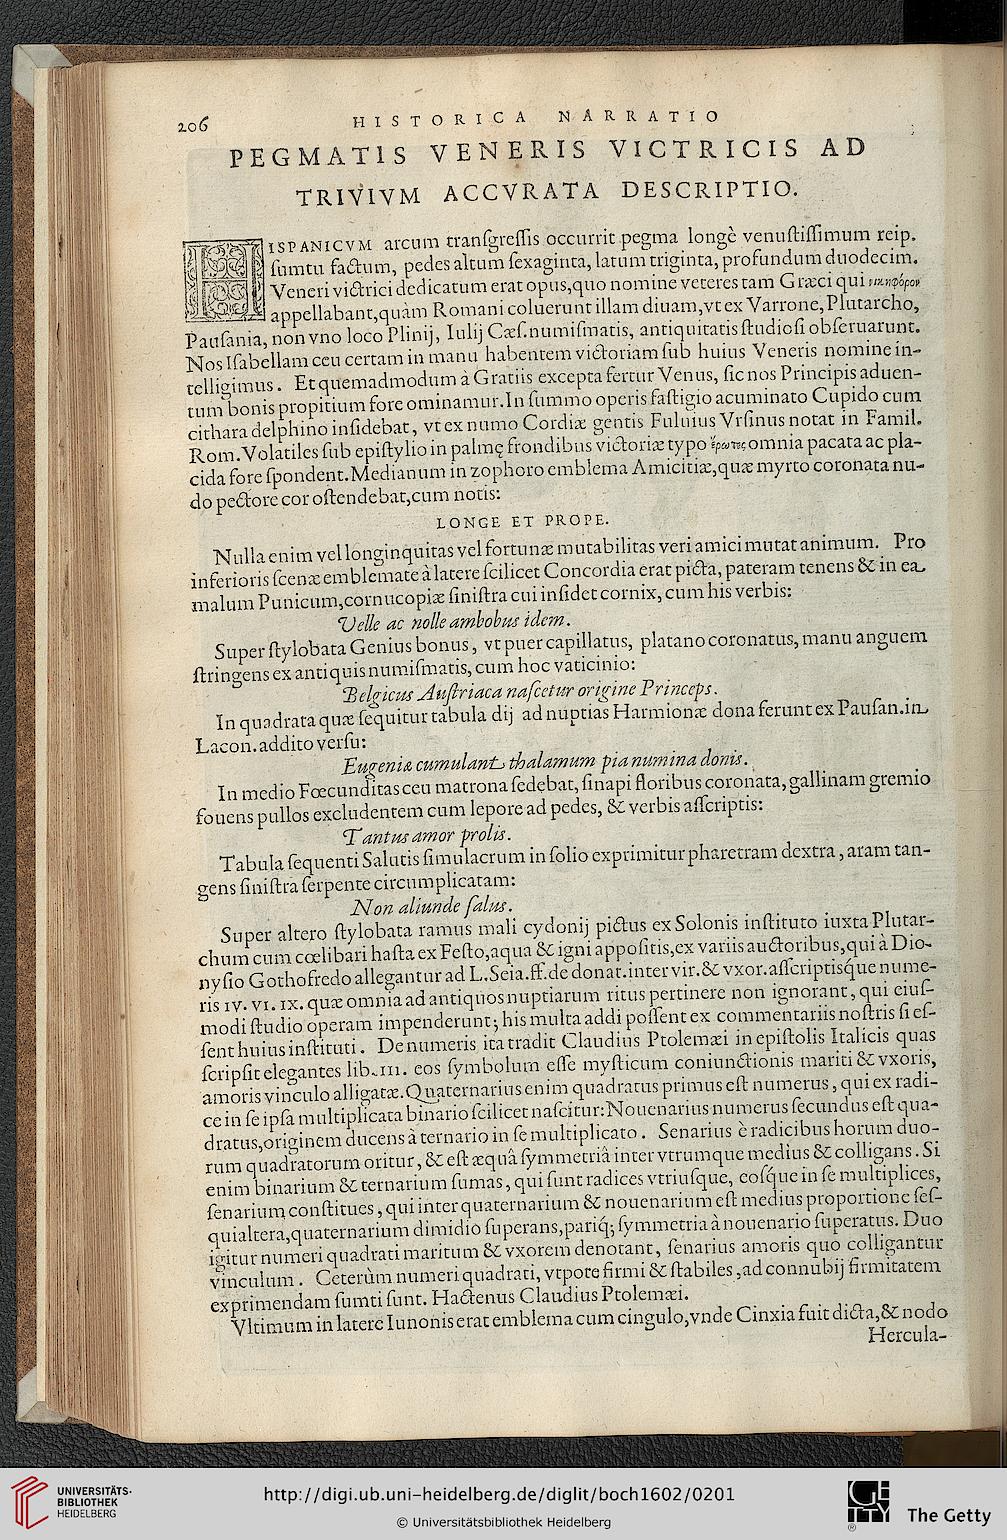 206
HISTORICA NARRATIO
PEGMATIS VENERIS VICTRICIS AD
TRIVIVM ACCVRATA DESCRIPTIO.
HISPANICVM arcum tranſgreſſis occurrit pegma longè venuſtiſſimum reip.
ſumtu factum, pedes altum ſexaginta, latum triginta, profundum duodecim.
Veneri victrici dedicatum erat opus, quo nomine veteres tam Græci qui νικηφόρον
appellabant, quàm Romani coluerunt illam diuam, vt ex Varrone, Plutarcho,
Pauſania, non vno loco Plinij, Iulij Cæſ. numiſmatis, antiquitatis ſtudioſi obſeruarunt.
Nos Iſabellam ceu certam in manu habentem victoriam ſub huius Veneris nomine in-
telligimus. Et quemadmodum à Gratiis excepta fertur Venus, ſic nos Principis aduen-
tum bonis propitium fore ominamur. In ſummo operis faſtigio acuminato Cupido cum
cithara delphino inſidebat, vt ex numo Cordiæ gentis Fuluius Vrſinus notat in Famil.
Rom. Volatiles ſub epiſtylio in palmę frondibus victoriæ typo ἔρωτες omnia pacata ac pla-
cida fore ſpondent. Medianum in zophoro emblema Amicitiæ, quæ myrto coronata nu-
do pectore cor oſtendebat, cum notis:
LONGE ET PROPE.
Nulla enim vel longinquitas vel fortunæ mutabilitas veri amici mutat animum. Pro
inferioris ſcenæ emblemate à latere ſcilicet Concordia erat picta, pateram tenens & in ea
malum Punicum, cornucopiæ ſiniſtra cui inſidet cornix, cum his verbis:
Velle ac nolle ambobus idem.
Super ſtylobata Genius bonus, vt puer capillatus, platano coronatus, manu anguem
ſtringens ex antiquis numiſmatis, cum hoc vaticinio:
Belgicus Auſtriaca naſcetur origine Princeps.
In quadrata quæ ſequitur tabula dij ad nuptias Harmionæ dona ferunt ex Pauſan. in
Lacon. addito verſu:
Eugeniæ cumulant thalamum pia numina donis.
In medio Fœcunditas ceu matrona ſedebat, ſinapi floribus coronata, gallinam gremio
fouens pullos excludentem cum lepore ad pedes, & verbis aſſcriptis:
Tantus amor prolis.
Tabula ſequenti Salutis ſimulacrum in ſolio exprimitur pharetram dextra, aram tan-
gens ſiniſtra ſerpente circumplicatam:
Non aliunde ſalus.
Super altero ſtylobata ramus mali cydonij pictus ex Solonis inſtituto iuxta Plutar-
chum cum cœlibari haſta ex Feſto, aqua & igni appoſitis, ex variis auctoribus, qui à Dio-
nyſio Gothofredo allegantur ad L. Seia. ff. de donat. inter vir. & vxor. aſſcriptisq́ue nume-
ris IV. VI. IX. quæ omnia ad antiquos nuptiarum ritus pertinere non ignorant, qui eiuſ-
modi ſtudio operam impenderunt; his multa addi poſſent ex commentariis noſtris ſi eſ-
ſent huius inſtituti. De numeris ita tradit Claudius Ptolemæi in epiſtolis Italicis quas
ſcripſit elegantes lib. III. eos ſymbolum eſſe myſticum coniunctionis mariti & vxoris,
amoris vinculo alligatæ. Quaternarius enim quadratus primus eſt numerus, qui ex radi-
ce in ſe ipſa multiplicata binario ſcilicet naſcitur: Nouenarius numerus ſecundus eſt qua-
dratus, originem ducens à ternario in ſe multiplicato. Senarius è radicibus horum duo-
rum quadratorum oritur, & eſt æquâ ſymmetriâ inter vtrumque medius & colligans. Si
enim binarium & ternarium ſumas, qui ſunt radices vtriuſque, eoſq́ue in ſe multiplices,
ſenarium conſtitues, qui inter quaternarium & nouenarium eſt medius proportione ſeſ-
quialtera, quaternarium dimidio ſuperans, pariq́; ſymmetria à nouenario ſuperatus. Duo
igitur numeri quadrati maritum & vxorem denotant, ſenarius amoris quo colligantur
vinculum. Ceterùm numeri quadrati, vtpote firmi & ſtabiles, ad connubij firmitatem
exprimendam ſumti ſunt. Hactenus Claudius Ptolemæi.
Vltimum in latere Iunonis erat emblema cum cingulo, vnde Cinxia fuit dicta, & nodo
Hercula-
UNIVERSITÄTS-
BIBLIOTHEK
HEIDELBERG
http://digi.ub.uni-heidelberg.de/diglit/boch1602/0201
© Universitätsbibliothek Heidelberg
GETTY
The Getty